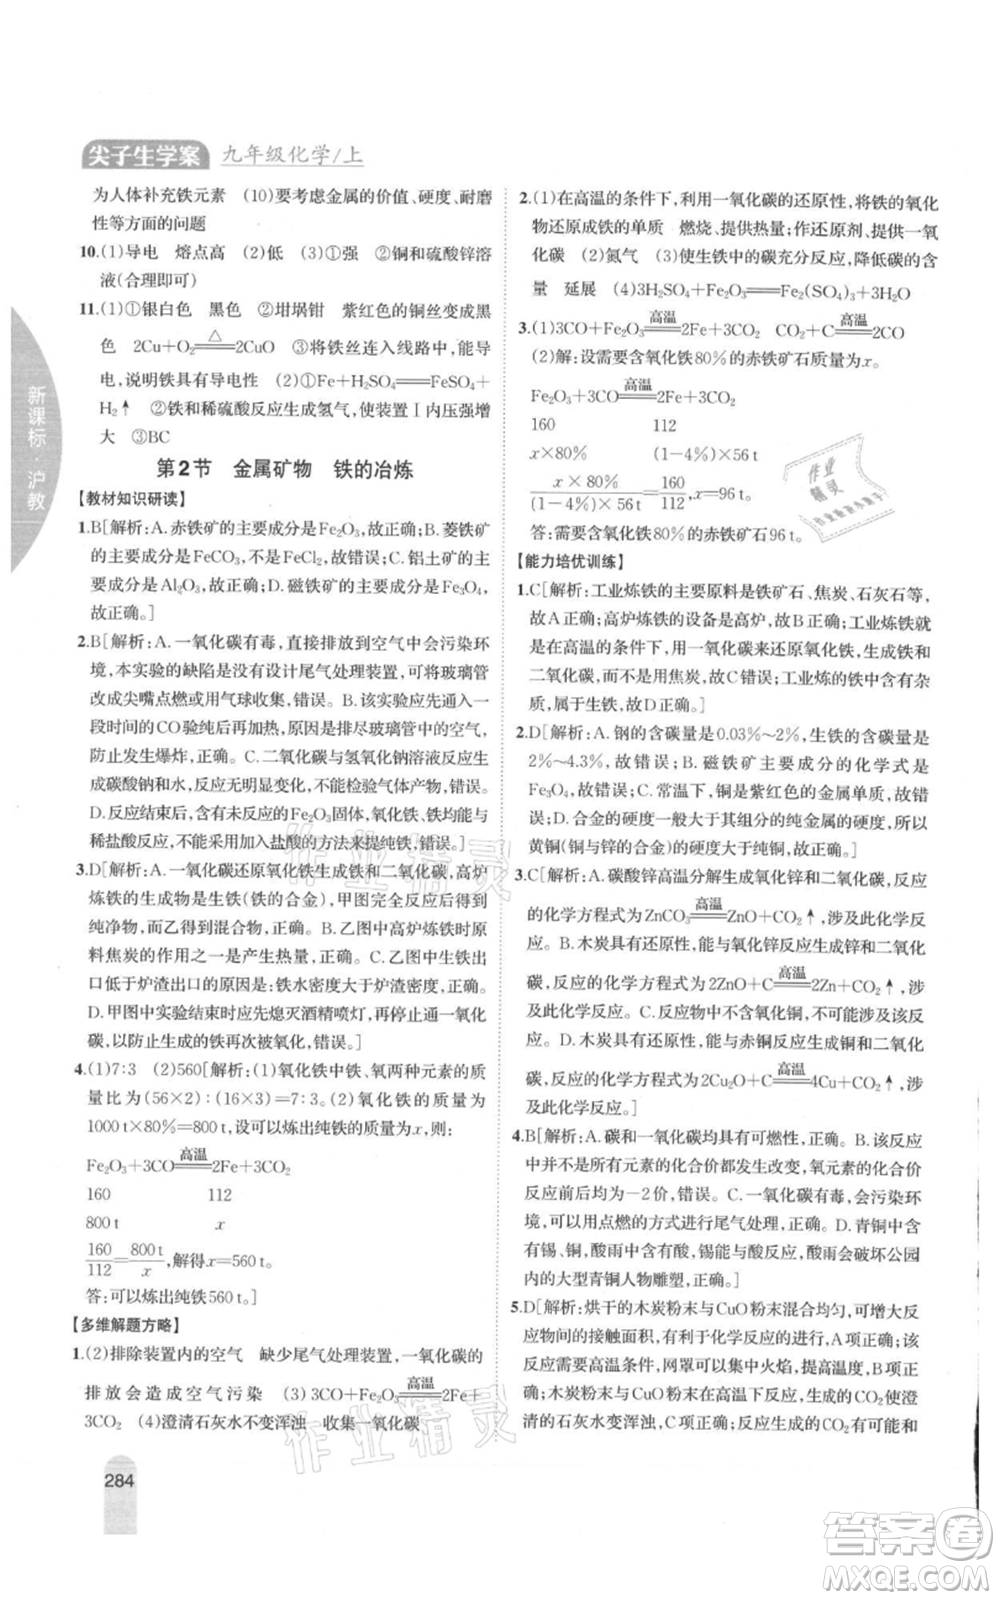 尖子生学案 九年级化学/上
为人体补充铁元素 (10)要考虑金属的价值、硬度、耐磨
性等方面的问题
10.(1)导电 熔点高 (2)低 (3)①强 ②铜和硫酸锌溶
液(合理即可)
11.(1)①银白色 黑色 ②坩埚钳 紫红色的铜丝变成黑
色 2Cu+O₂\xlongequal{△}2CuO ③将铁丝连入线路中,能导
电,说明铁具有导电性 (2)①Fe+H₂SO₄══FeSO₄+
H₂↑ ②铁和稀硫酸反应生成氢气,使装置Ⅰ内压强增
大 ③BC
第2节 金属矿物 铁的冶炼
【教材知识研读】
1.B[解析:A.赤铁矿的主要成分是Fe₂O₃,故正确;B.菱铁矿
的主要成分是FeCO₃,不是FeCl₂,故错误;C.铝土矿的主
要成分是Al₂O₃,故错误;D.磁铁矿的主要成分是Fe₃O₄,
故错误。]
2.B[解析:A.一氧化碳有毒,直接排放到空气中会污染环
境,本实验的缺陷是没有设计尾气处理装置,可将玻璃管
改成尖嘴点燃或用气球收集,错误。B.该实验应先通入一
段时间的CO验纯后再加热,原因是排尽玻璃管中的空气,
防止发生爆炸,正确。C.二氧化碳与氢氧化钠溶液反应生
成碳酸钠和水,反应无明显现象,不能检验气体产物,错误。
D.反应后的固体中,含有未反应的Fe₂O₃固体,氧化铁、铁均能与
稀盐酸反应,不能用加入稀盐酸的方法来提纯铁,错误。]
3.D[解析:A.一氧化碳还原氧化铁生成铁和二氧化碳,高炉
炼铁的生成物是生铁(铁的合金),甲图中实验获得的是
纯净物,乙图中获得的是混合物,正确。B.乙图中高炉炼铁时原
料焦炭的作用之一是提供热量,正确。C.乙图中铁水出口
低于炉渣出口的原因是:铁水密度大于炉渣密度,正确。
D.甲图中实验结束时应先熄灭酒精喷灯,再停止通入一氧化
碳,以防止生成的铁再次被氧化,错误。]
4.(1)7:3 (2)560[解析:(1)氧化铁中铁、氧两种元素的质量
比为(56×2):(16×3)=7:3。(2)氧化铁的质量为
1000 t×80%=800 t,设可以炼出纯铁的质量为x,则:
Fe₂O₃+3CO\xlongequal{高温}2Fe+3CO₂
160 112
800 t x
160/112=800 t/x,解得x=560 t。
答:可以炼出纯铁560 t。]
【多维解题方略】
1.(2)排除装置内的空气 缺少尾气处理装置,一氧化碳的
排放会造成空气污染 (3)3CO+Fe₂O₃\xlongequal{高温}2Fe+
3CO₂ (4)澄清石灰水不变浑浊 收集一氧化碳
2.(1)在高温的条件下,利用一氧化碳的还原性,将铁的氧化
物还原成铁的单质 燃烧、提供热量;作还原剂、提供一氧
化碳 (2)氮气 (3)使生铁中的碳充分反应,降低碳的含
量 延展 (4)3H₂SO₄+Fe₂O₃══Fe₂(SO₄)₃+3H₂O
3.(1)3CO+Fe₂O₃\xlongequal{高温}2Fe+3CO₂ CO₂+C\xlongequal{高温}2CO
(2)解:设需要含氧化铁80%的赤铁矿石质量为x。
Fe₂O₃+3CO\xlongequal{高温}2Fe+3CO₂
160 112
x×80% (1-4%)×56 t
x×80%/(1-4%)×56 t=160/112,x=96 t。
答:需要含氧化铁80%的赤铁矿石96 t。
【能力培优训练】
1.C[解析:工业炼铁的主要原料是铁矿石、焦炭、石灰石等,
故A正确;高炉炼铁的设备是高炉,故B正确;工业炼铁就是
在高温下,用一氧化碳来还原氧化铁,生成铁和
二氧化碳,不是用焦炭,故C错误;工业炼的铁中含有杂
质,属于生铁,故D正确。]
2.D[解析:A.钢的含碳量是0.03%~2%,生铁的含碳量是
2%~4.3%,故错误;B.磁铁矿主要成分的化学式是
Fe₃O₄,故错误;C.常温下,铜是紫红色的金属单质,故错
误;D.合金的硬度一般大于其组分的纯金属的硬度,所以
黄铜(铜与锌的合金)的硬度大于纯铜,故正确。]
3.C[解析:A.碳酸锌高温分解生成氧化锌和二氧化碳,反应
的化学方程式为ZnCO₃\xlongequal{高温}ZnO+CO₂↑,涉及此化学反
应。B.木炭具有还原性,能与氧化锌反应生成锌和二氧化
碳,反应的化学方程式为2ZnO+C\xlongequal{高温}2Zn+CO₂↑,涉
及此化学反应。C.反应物中不含有氧化铜,不涉及此化学
反应。D.木炭具有还原性,能与赤铜反应生成铜和二氧化
碳,反应的化学方程式为2Cu₂O+C\xlongequal{高温}4Cu+CO₂↑,涉
及此化学反应。]
4.B[解析:A.碳和一氧化碳均具有可燃性,正确。B.该反应
前后所有元素的化合价都发生改变,氧元素的化合价在
反应前后均为-2价,错误。C.一氧化碳有毒,会污染环
境,可以用点燃的方式进行尾气处理,正确。D.青铜中含
有锡、铜,酸雨中含有酸,锡能与酸反应,酸雨会破坏公园
内的大型青铜人物雕塑,正确。]
5.D[解析:烘干的木炭粉末与CuO粉末混合均匀,可增大反
应物间的接触面积,有利于化学反应的进行,A项正确;该实验
需要高温,网罩可以集中火焰,提高温度,B项正确;
氧化铜与木炭粉末反应生成铜和二氧化碳,能使澄
清的石灰水变浑浊,C项正确;反应生成的CO₂有可能和
284
新课标·沪教
作业精灵
作业精灵
作业精灵
答案卷
MXQE.COM